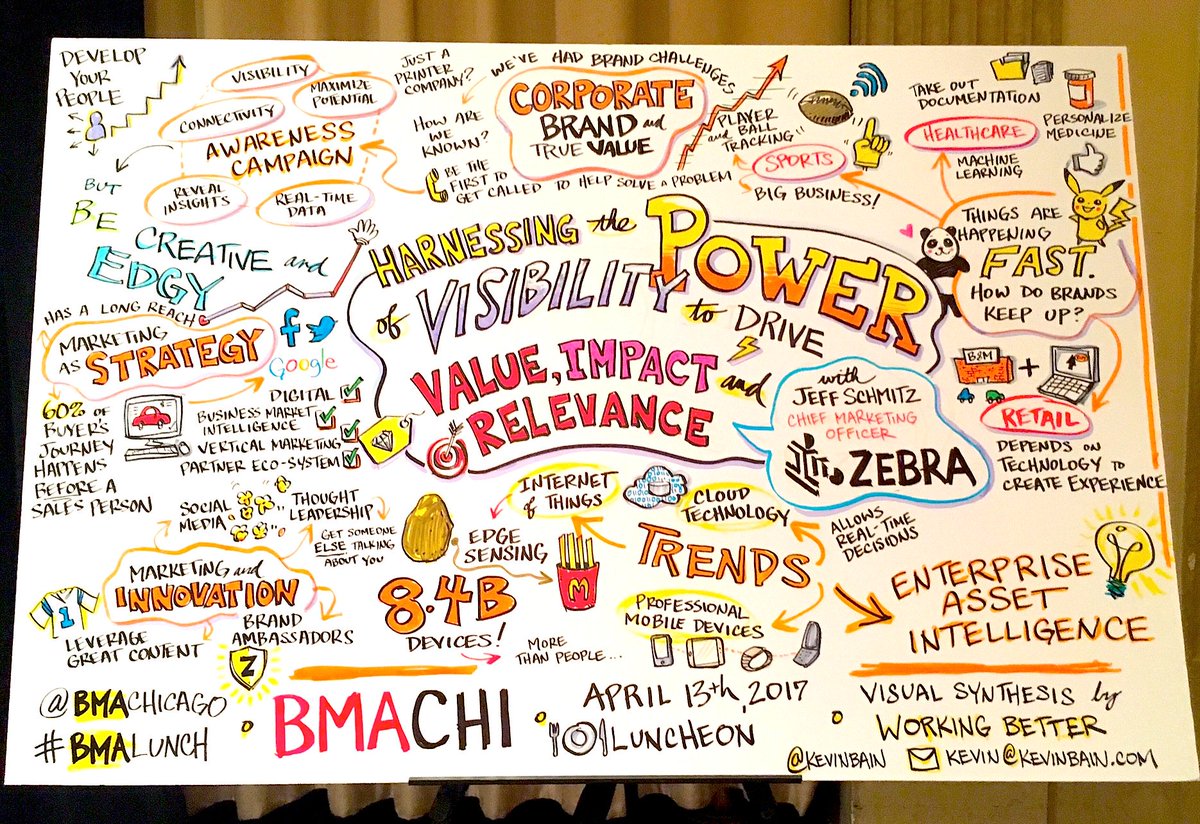 DEVELOP
YOUR
PEOPLE
BUT
BE
CREATIVE and
EDGY
VISIBILITY
MAXIMIZE
POTENTIAL
CONNECTIVITY
AWARENESS
CAMPAIGN
REVEAL
INSIGHTS
REAL-TIME
DATA
JUST A
PRINTER
COMPANY?
WE'VE HAD BRAND CHALLENGES
HOW ARE
WE
KNOWN?
CORPORATE
BRAND and
TRUE VALUE
BE THE
FIRST TO
GET CALLED TO HELP SOLVE A PROBLEM
PLAYER
and BALL
TRACKING"
SPORTS
BIG BUSINESS!
TAKE OUT
DOCUMENTATION
HEALTHCARE
PERSONALIZE
MEDICINE
MACHINE
LEARNING
THINGS ARE
HAPPENING
FAST.
HOW DO BRANDS
KEEP UP?
HARNESSING the
POWER
of VISIBILITY
to DRIVE
VALUE, IMPACT and
RELEVANCE
with
JEFF SCHMITZ
CHIEF MARKETING
OFFICER
ZEBRA
B&M
+
RETAIL
DEPENDS ON
TECHNOLOGY TO
CREATE EXPERIENCE
HAS A LONG REACH
MARKETING
AS STRATEGY
f
Google
60% OF
BUYER'S
JOURNEY
HAPPENS
BEFORE A
SALES PERSON
DIGITAL
BUSINESS MARKET
INTELLIGENCE
VERTICAL MARKETING
PARTNER ECO-SYSTEM
SOCIAL
MEDIA
THOUGHT
LEADERSHIP
GET SOMEONE
ELSE TALKING
ABOUT YOU
MARKETING and
INNOVATION
1
LEVERAGE
GREAT CONTENT
BRAND
AMBASSADORS
Z
INTERNET
of THINGS
EDGE
SENSING
M
8.4B
DEVICES!
MORE
THAN PEOPLE...
CLOUD
TECHNOLOGY
TRENDS
ALLOWS
REAL-TIME
DECISIONS
PROFESSIONAL
MOBILE DEVICES
ENTERPRISE
ASSET
INTELLIGENCE
@BMACHICAGO
#BMALUNCH
BMACHI
APRIL 13th, 2017
LUNCHEON
VISUAL SYNTHESIS by
WORKING BETTER
@KEVINBAIN KEVIN@KEVINBAIN.COM